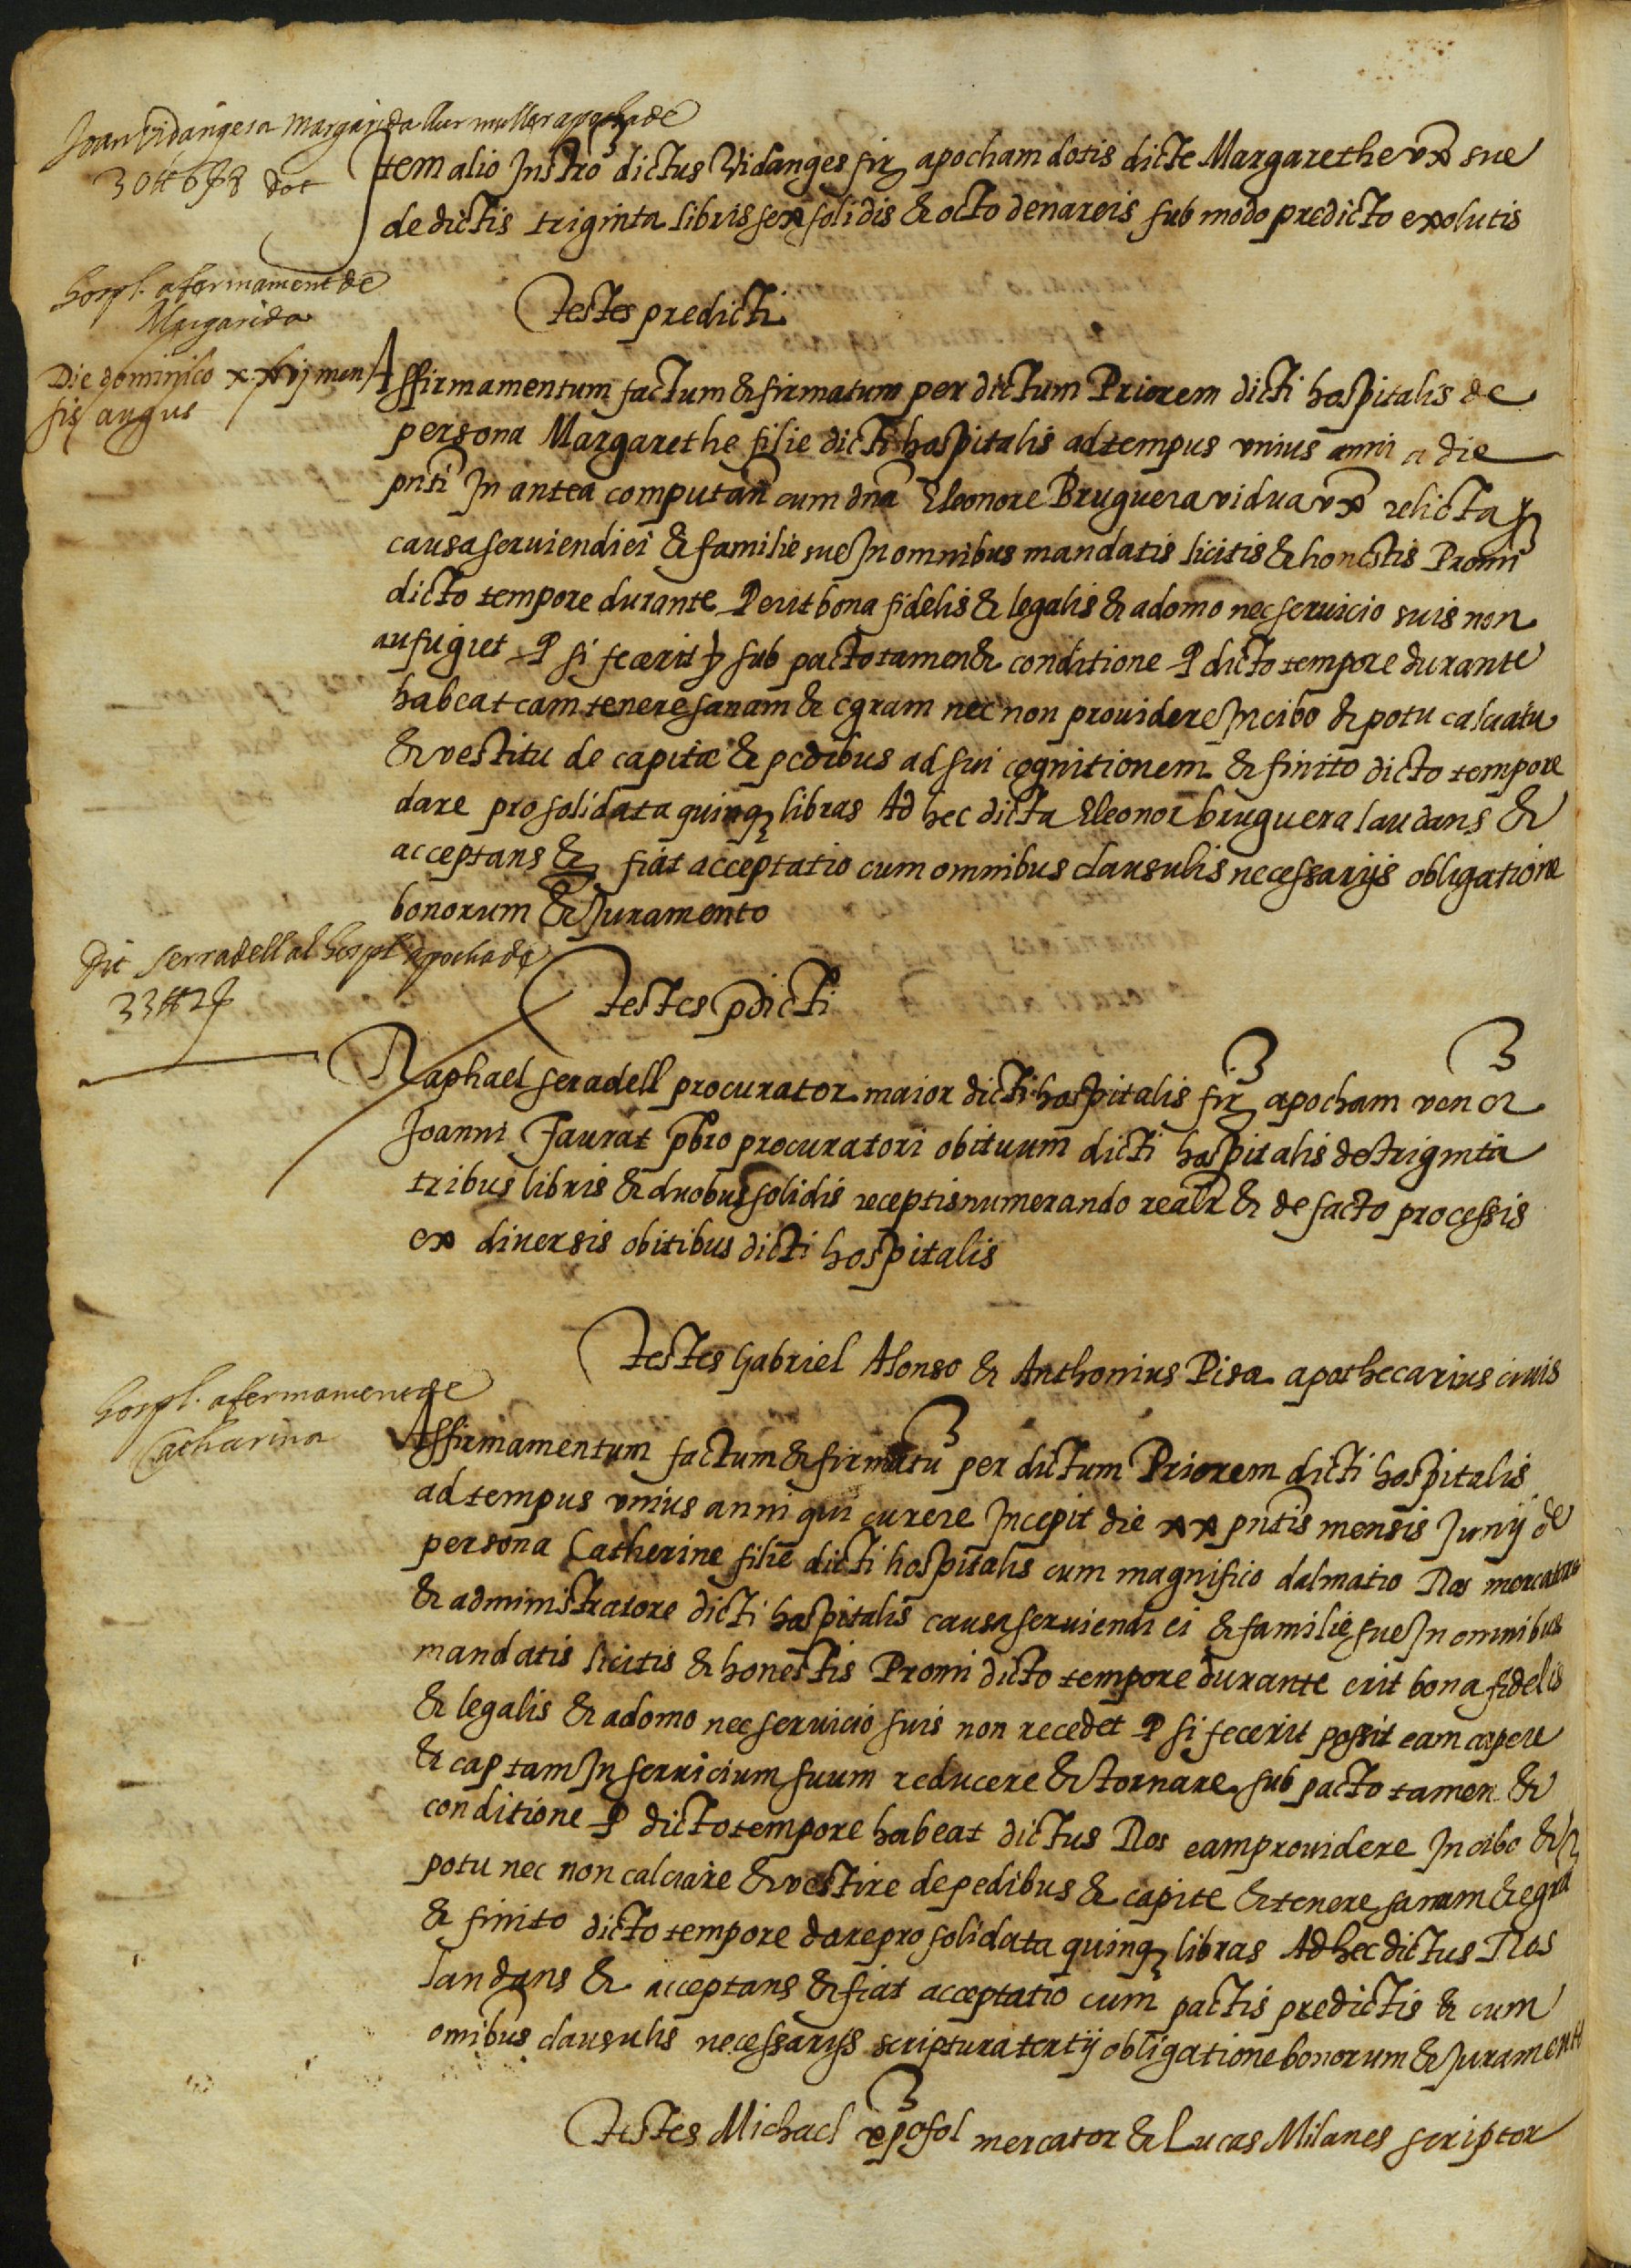 Joan Vidanges a Margarida llur muller apocha de
30 ## 6 ß 8 dot
Item alio Instro dictus Vidanges fir apocham dotis dicte Margarethe ux sue
de dictis triginta libris sex solidis & octo denareis sub modo predicto exolutis
testes predicti
hospl. afermament de
Margarida
Die dominico xxvij men
sis augus
Affirmamentum factum & firmatum per dictum Priorem dicti hospitalis de
persona Margarethe filie dicti hospitalis ad tempus unius anni a die
pnti In antea computan cum dna Eleonore Bruguera vidua ux relicta &
causa serviendi ei & familie sue In omnibus mandatis licitis & honestis Promi
dicto tempore durante q erit bona fidelis & legalis & a domo nec servicio suis non
aufugiet q si fecerit & sub pacto tamen & conditione q dicto tempore durante
habeat eam tenere sanam & egram nec non providere In cibo & potu calciatu
& vestitu de capite & pedibus ad sui cognitionem & finito dicto tempore
dare pro solidata quinq libras Ad hec dicta Eleonor bruguera laudans &
acceptans & fiat acceptatio cum omnibus clausulis necessariis obligatione
bonorum & Juramento
dit serradell al hospl apocha de
33 ## 2 ß
testes pdicti
Raphael seradell procurator maior dicti hospitalis fir apocham vener
Joanni Faurat pbro procuratori obituum dicti hospitalis de triginta
tribus libris & duobus solidis receptis numerando realr & de facto processis
ex diversis obitibus dicti hospitalis
testes Gabriel Alonso & Anthonius Pisa apothecarius civis
hospl. afermament de
Catharina
Affirmamentum factum & firmatu per dictum Priorem dicti hospitalis
ad tempus unius anni qui curere Incepit die xx pntis mensis Junij de
persona Catherine filie dicti hospitalis cum magnifico dalmatio Ros mercatore
& administratore dicti hospitalis causa serviendi ei & familie sue In omnibus
mandatis licitis & honestis Promi dicto tempore durante erit bona fidelis
& legalis & a domo nec servicio suis non recedet q si fecerit possit eam capere
& captam In servicium suum reducere & tornare sub pacto tamen &
conditione q dicto tempore habeat dictus Ros eam providere In cibo & In
potu nec non calciare & vestire de pedibus & capite & tenere sanam & egra
& finito dicto tempore dare pro solidata quinq libras Ad hec dictus Ros
laudans & acceptans & fiat acceptatio cum pactis predictis & cum
omibus clausulis necessarys scriptura tertij obligatione bonorum & Juramento
testes Michael xpofol mercator & Lucas Milanes scriptor